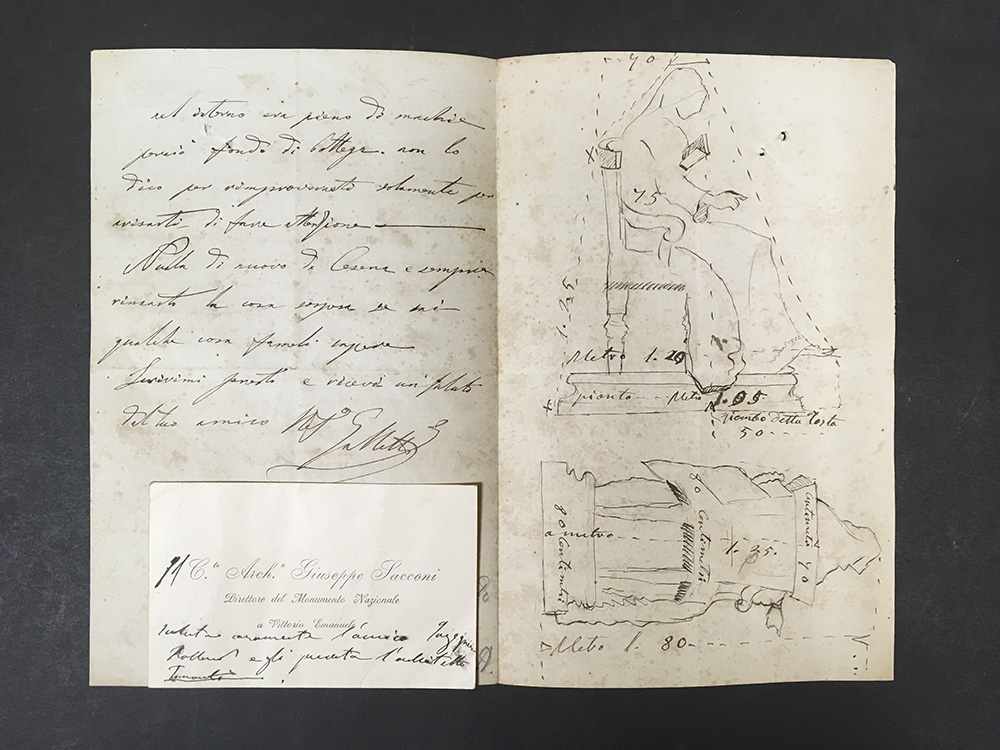 nel interno era pieno di machie
perciò fondo di bottega. non lo
dico per rimproverarti solamente per
avisarti di fare attenzione
Nulla di nuovo da Cesena e sempre
la cosa sospesa se sai
qualche cosa
Scrivimi presto e ricevi un saluto
del tuo amico
Il C.te Arch.o Giuseppe Sacconi
Direttore del Monumento Nazionale
a Vittorio Emanuele
saluta caramente l'amico Ingegnere
e gli presenta l'architetto
70
75
1.35
Metro 1.20
pianta Metro 1.05
piombo della testa
50
80 Centimetri
a metro
80 Centimetri
1.35.
Centimetri 70
Metro 1.80